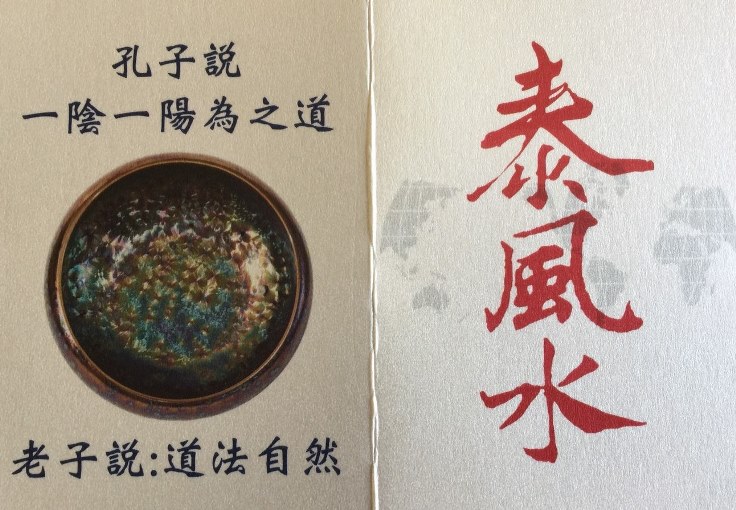 孔子説
一陰一陽為之道
老子説:道法自然
泰風水